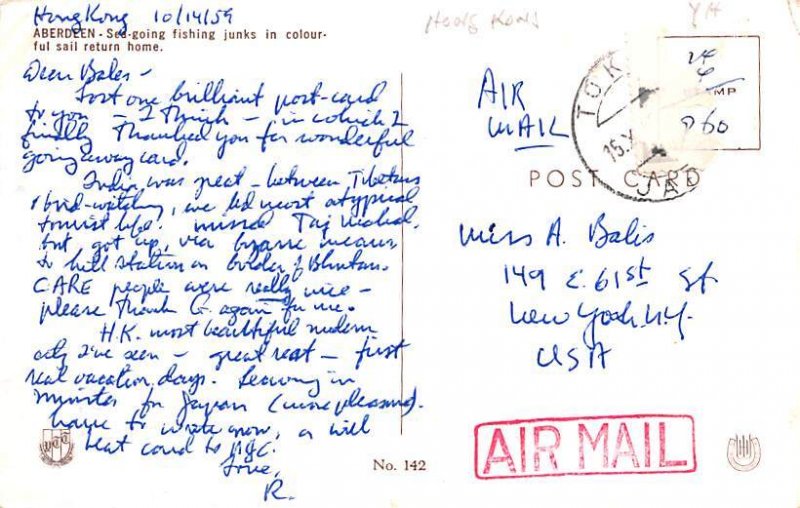 HongKong 10/14/59
HONG KONG
YH
ABERDEEN - Sea-going fishing junks in colour-
ful sail return home.
Dear Bales -
Lost one brilliant post-card
to you - I think - in which I
finally thanked you for wonderful
going away card.
India was great - between Tibetans
& bird-watching, we led most atypical
tourist life. missed Taj Mahal.
but got up, via bizarre means
to hill station on border of Bhutan.
CARE people were really nice -
please thank G. again for me.
H.K. most beautiful modern
city I've seen - great rest - first
real vacation days. Leaving in
minutes for Japan
have to write now, or will
beat card to NYC.
Love,
R.
No. 142
AIR
MAIL
TOK
15.X
JAP
MP
060
POST CARD
Miss A. Balis
149 E. 61st St
New York, N.Y.
USA
AIR MAIL